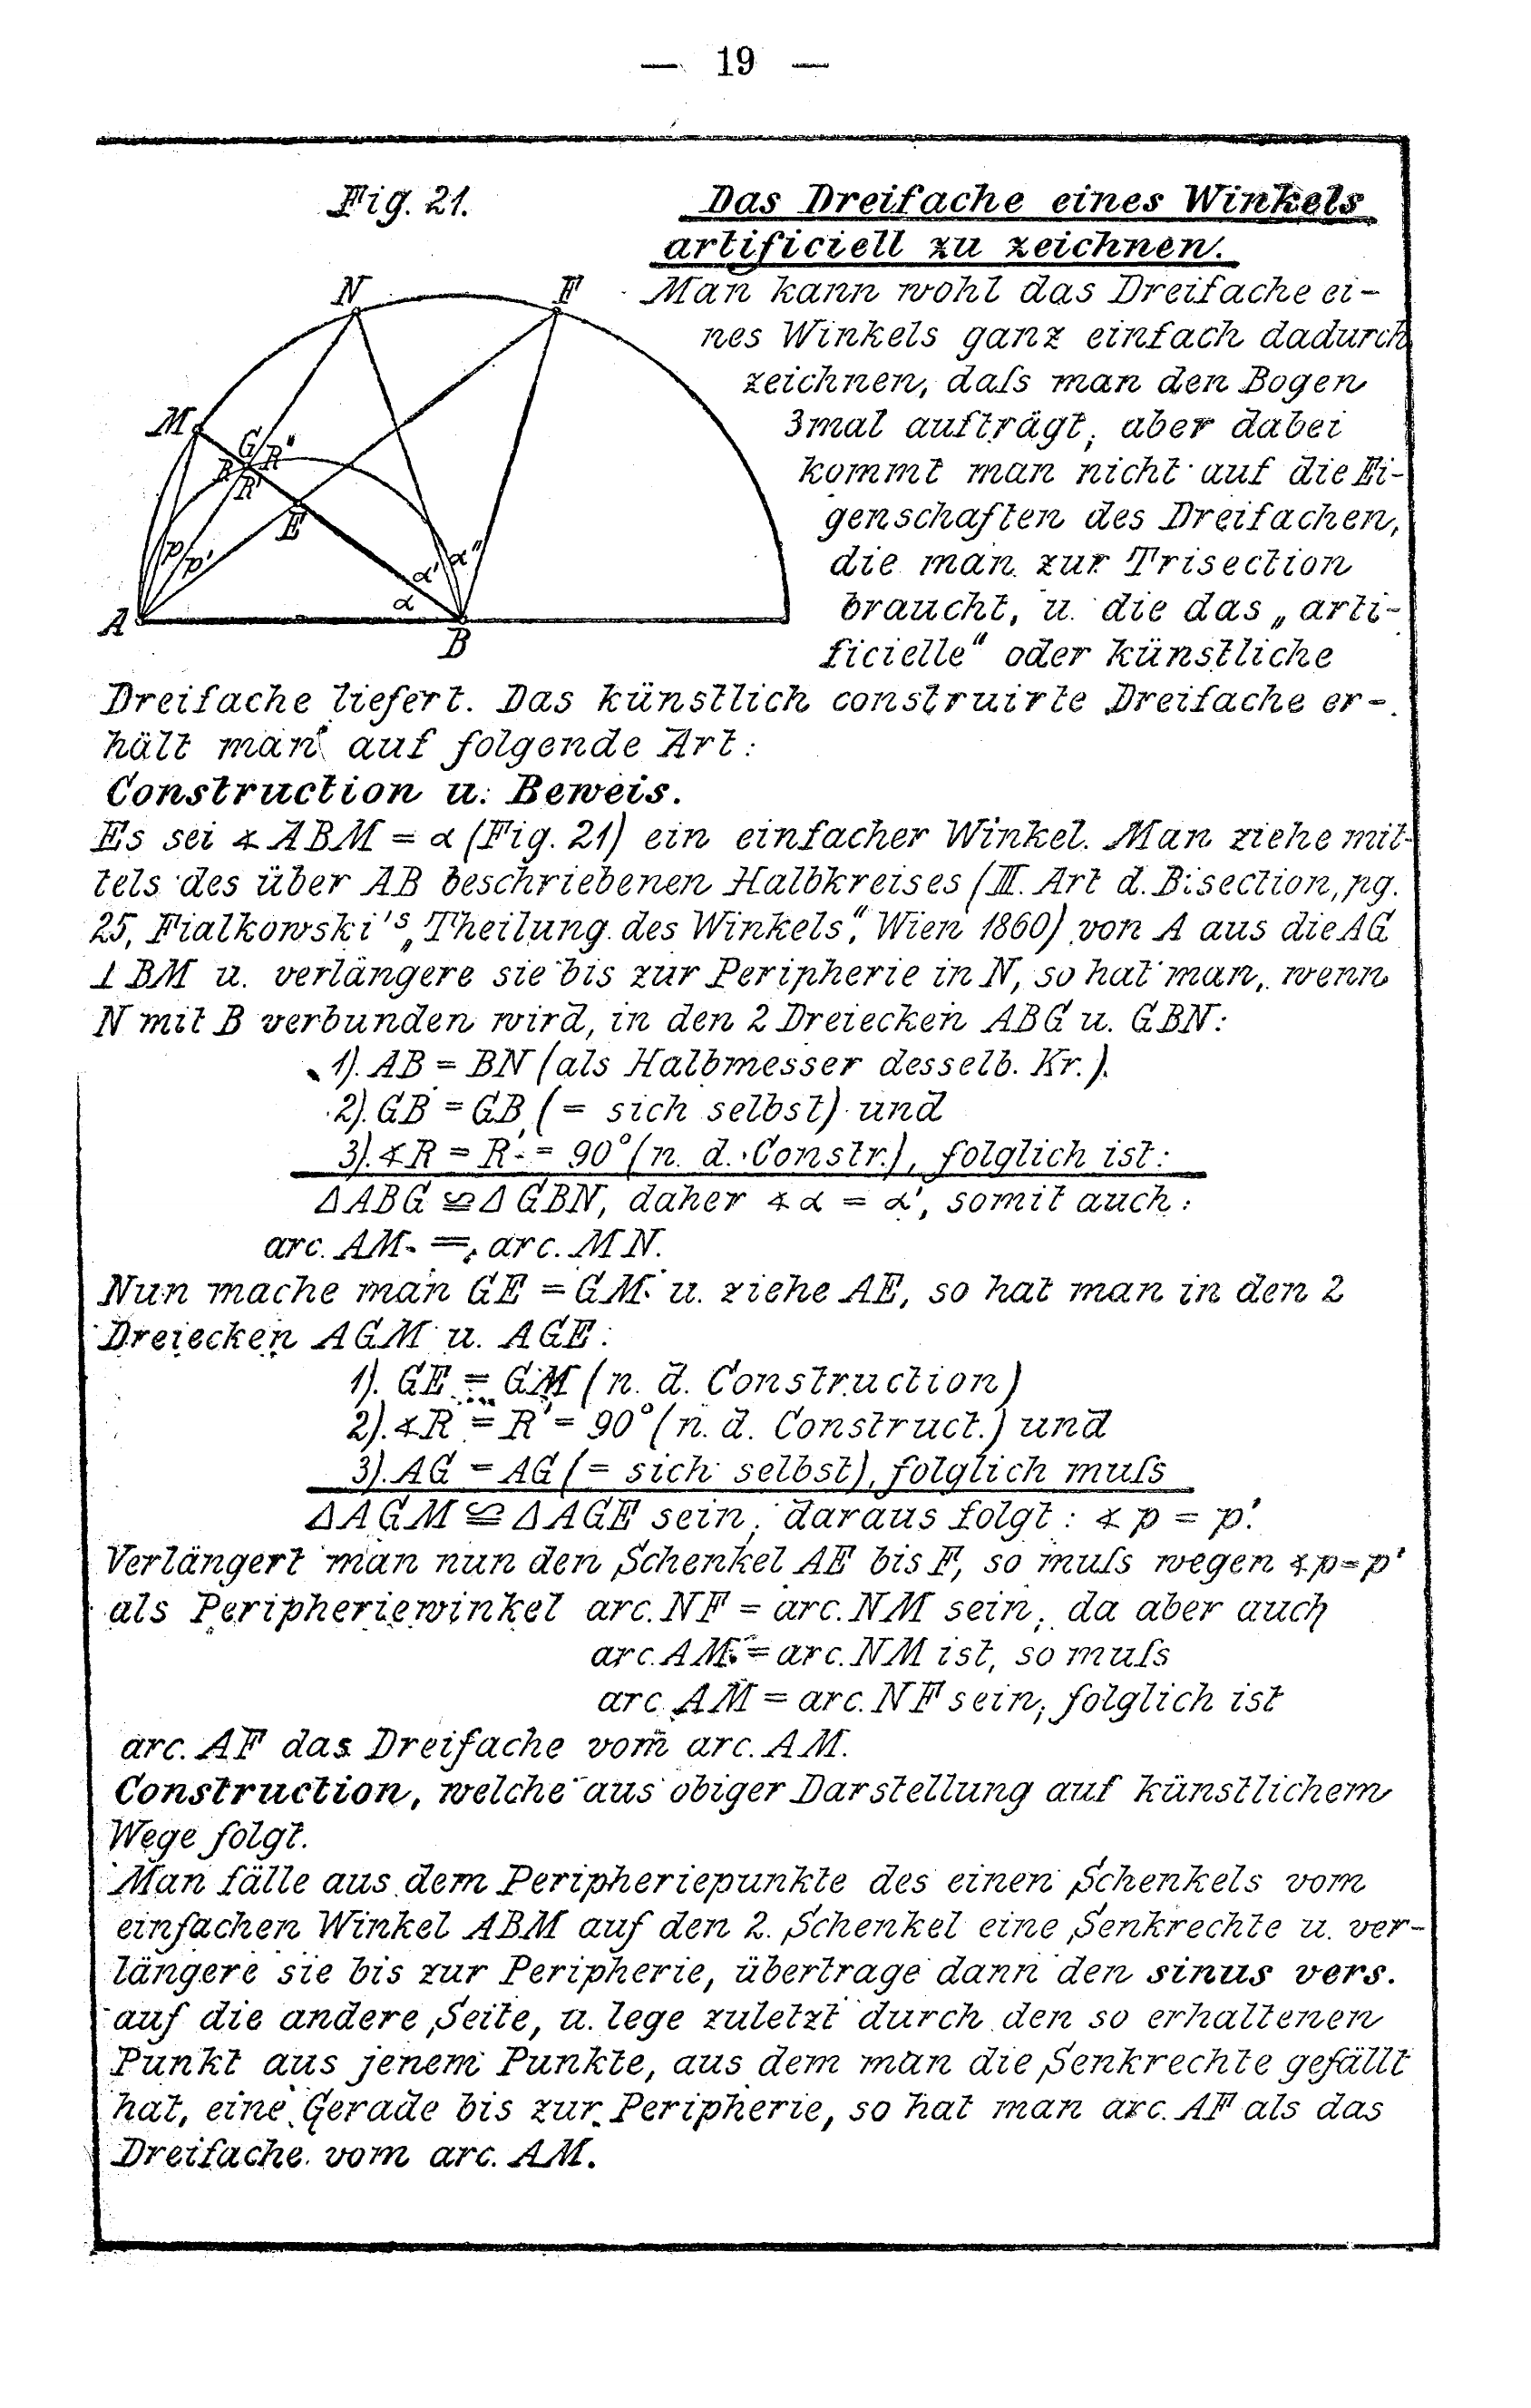 — 19 —
Fig. 21.
Das Dreifache eines Winkels
artificiell zu zeichnen.
Man kann wohl das Dreifache ei-
nes Winkels ganz einfach dadurch
zeichnen, daſs man den Bogen
3mal aufträgt, aber dabei
kommt man nicht auf die Ei-
genschaften des Dreifachen,
die man zur Trisection
braucht, u. die das „arti-
ficielle“ oder künstliche
N F
M G R" R R' E
p p' α' α" α
A B
Dreifache liefert. Das künstlich construirte Dreifache er-
hält man auf folgende Art:
Construction u. Beweis.
Es sei ∢ ABM = α (Fig. 21) ein einfacher Winkel. Man ziehe mit-
tels des über AB beschriebenen Halbkreises (III. Art d. Bisection, pg.
25, Fialkowski's „Theilung des Winkels“, Wien 1860) von A aus die AG
⊥ BM u. verlängere sie bis zur Peripherie in N, so hat man, wenn
N mit B verbunden wird, in den 2 Dreiecken ABG u. GBN:
1). AB = BN (als Halbmesser desselb. Kr.).
2). GB = GB (= sich selbst) und
3). ∢ R = R' = 90° (n. d. Constr.), folglich ist:
Δ ABG ≌ Δ GBN, daher ∢ α = α', somit auch:
arc. AM = arc. MN.
Nun mache man GE = GM u. ziehe AE, so hat man in den 2
Dreiecken AGM u. AGE:
1). GE = GM (n. d. Construction)
2). ∢ R = R' = 90° (n. d. Construct.) und
3). AG = AG (= sich selbst), folglich muſs
Δ AGM ≌ Δ AGE sein, daraus folgt: ∢ p = p'.
Verlängert man nun den Schenkel AE bis F, so muſs wegen ∢ p = p'
als Peripheriewinkel arc. NF = arc. NM sein, da aber auch
arc. AM = arc. NM ist, so muſs
arc. AM = arc. NF sein, folglich ist
arc. AF das Dreifache vom arc. AM.
Construction, welche aus obiger Darstellung auf künstlichem
Wege folgt.
Man fälle aus dem Peripheriepunkte des einen Schenkels vom
einfachen Winkel ABM auf den 2. Schenkel eine Senkrechte u. ver-
längere sie bis zur Peripherie, übertrage dann den sinus vers.
auf die andere Seite, u. lege zuletzt durch den so erhaltenen
Punkt aus jenem Punkte, aus dem man die Senkrechte gefällt
hat, eine Gerade bis zur Peripherie, so hat man arc. AF als das
Dreifache vom arc. AM.